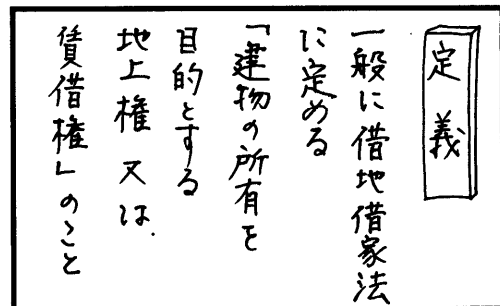 定義
一般に借地借家法
に定める
「建物の所有を
目的とする
地上権又は、
賃借権」のこと